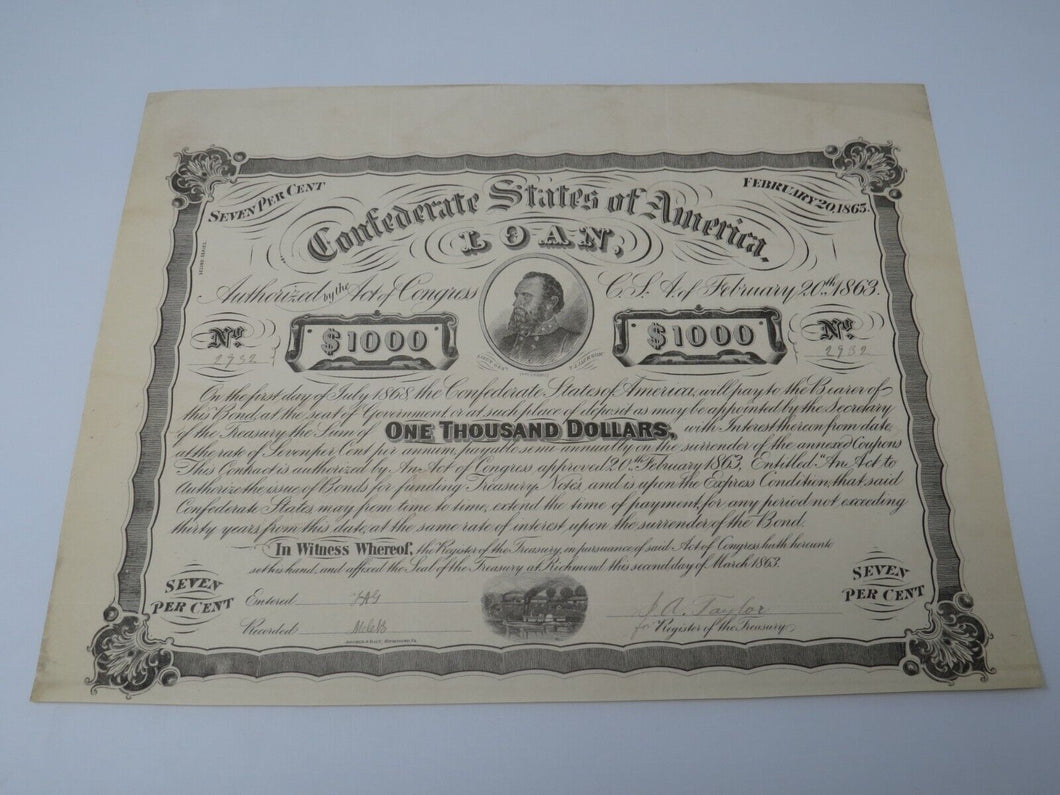 SEVEN PER CENT
FEBRUARY 20, 1863.
Confederate States of America.
LOAN,
SECOND SERIES.
Authorized by the Act of Congress C. S. A. of February 20th. 1863.
No. 2932
$1000
$1000
No. 2932
LIEUT. GENL. T. J. JACKSON
On the first day of July 1868 the Confederate States of America, will pay to the Bearer of
this Bond, at the seat of Government or at such place of deposit as may be appointed by the Secretary
of the Treasury the Sum of ONE THOUSAND DOLLARS, with Interest thereon from date,
at the rate of Seven per Cent per annum, payable semi-annually on the surrender of the annexed Coupons
This Contract is authorized by An Act of Congress approved 20th February 1863, Entitled "An Act to
Authorize the issue of Bonds for funding Treasury Notes, and is upon the Express Condition, that said
Confederate States may from time to time, extend the time of payment, for any period not exceeding
thirty years from this date, at the same rate of interest upon the surrender of the Bond.
In Witness Whereof, the Register of the Treasury, in pursuance of said Act of Congress hath hereunto
set his hand, and affixed the Seal of the Treasury at Richmond, this second day of March 1863.
SEVEN PER CENT
SEVEN PER CENT
Entered
Recorded
J. A. Taylor
for Register of the Treasury